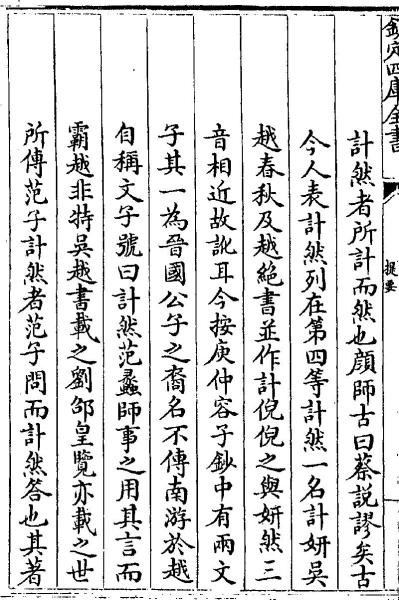 欽定四庫全書
提要
計然者所計而然也顔師古曰蔡説謬矣古
今人表計然列在第四等計然一名計妍吳
越春秋及越絶書並作計倪倪之與妍然三
音相近故訛耳今按庾仲容子鈔中有兩文
子其一為晉國公子之裔名不傳南游於越
自稱文子號曰計然范蠡師事之用其言而
霸越非特吳越書載之劉邵皇覽亦載之世
所傳范子計然者范子問而計然答也其著